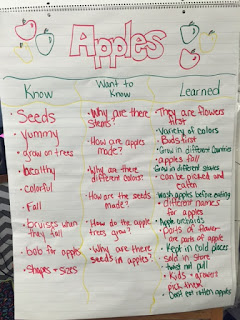 Apples
Know
Want to
Know
Learned
Seeds
yummy
grow on trees
healthy
colorful
Fall
bruises when
they fall
bob for apples
Shapes + sizes
Why are there
stems?
How are apples
made?
Why are there
different colors?
How are the seeds
made?
How do the apple
trees grow?
Why are there
seeds in apples?
They are flowers
first
Variety of colors
Buds first
Grow in different Countries
apples fall
Grow in different states
can be picked and
eaten
Wash apples before eating
different names
for apples
Apple orchards
parts of flower
are parts of apple
Kept in cold places
sold in store
twist not pull
Kids + growers
pick them
Don't eat rotten apples